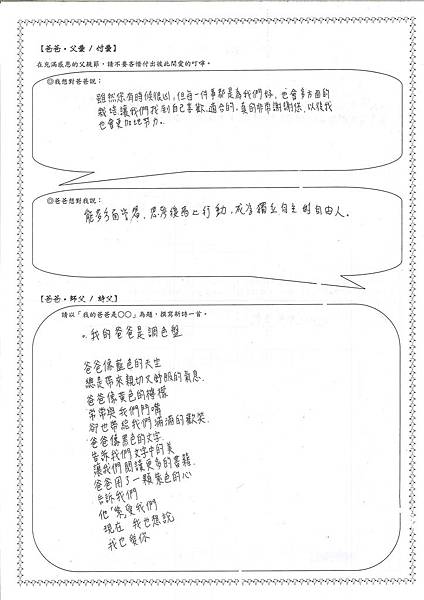 【爸爸‧父愛 / 付愛】
在充滿感恩的父親節，請不要吝惜付出彼此間愛的叮嚀。
◎我想對爸爸說：
雖然你有時候很凶，但每一件事都是為我們好，也會多方面的
栽培讓我們找到自己喜歡、適合的，真的非常謝謝你，以後我
也會更加地努力。
◎爸爸想對我說：
能多方面學習，思考後馬上行動，成為獨立自主的自由人。
【爸爸‧師父 / 詩父】
請以「我的爸爸是○○」為題，撰寫新詩一首。
。我的爸爸是調色盤
爸爸像藍色的天空
總是帶來親切又舒服的氣息.
爸爸像黃色的檸檬
常常與我們鬥嘴
卻也帶給我們滿滿的歡笑.
爸爸像黑色的文字
告訴我們文字中的美
讓我們閱讀更多的書籍.
爸爸用了一顆紫色的心
告訴我們
他「紫」愛我們
現在 我也想說
我也愛你